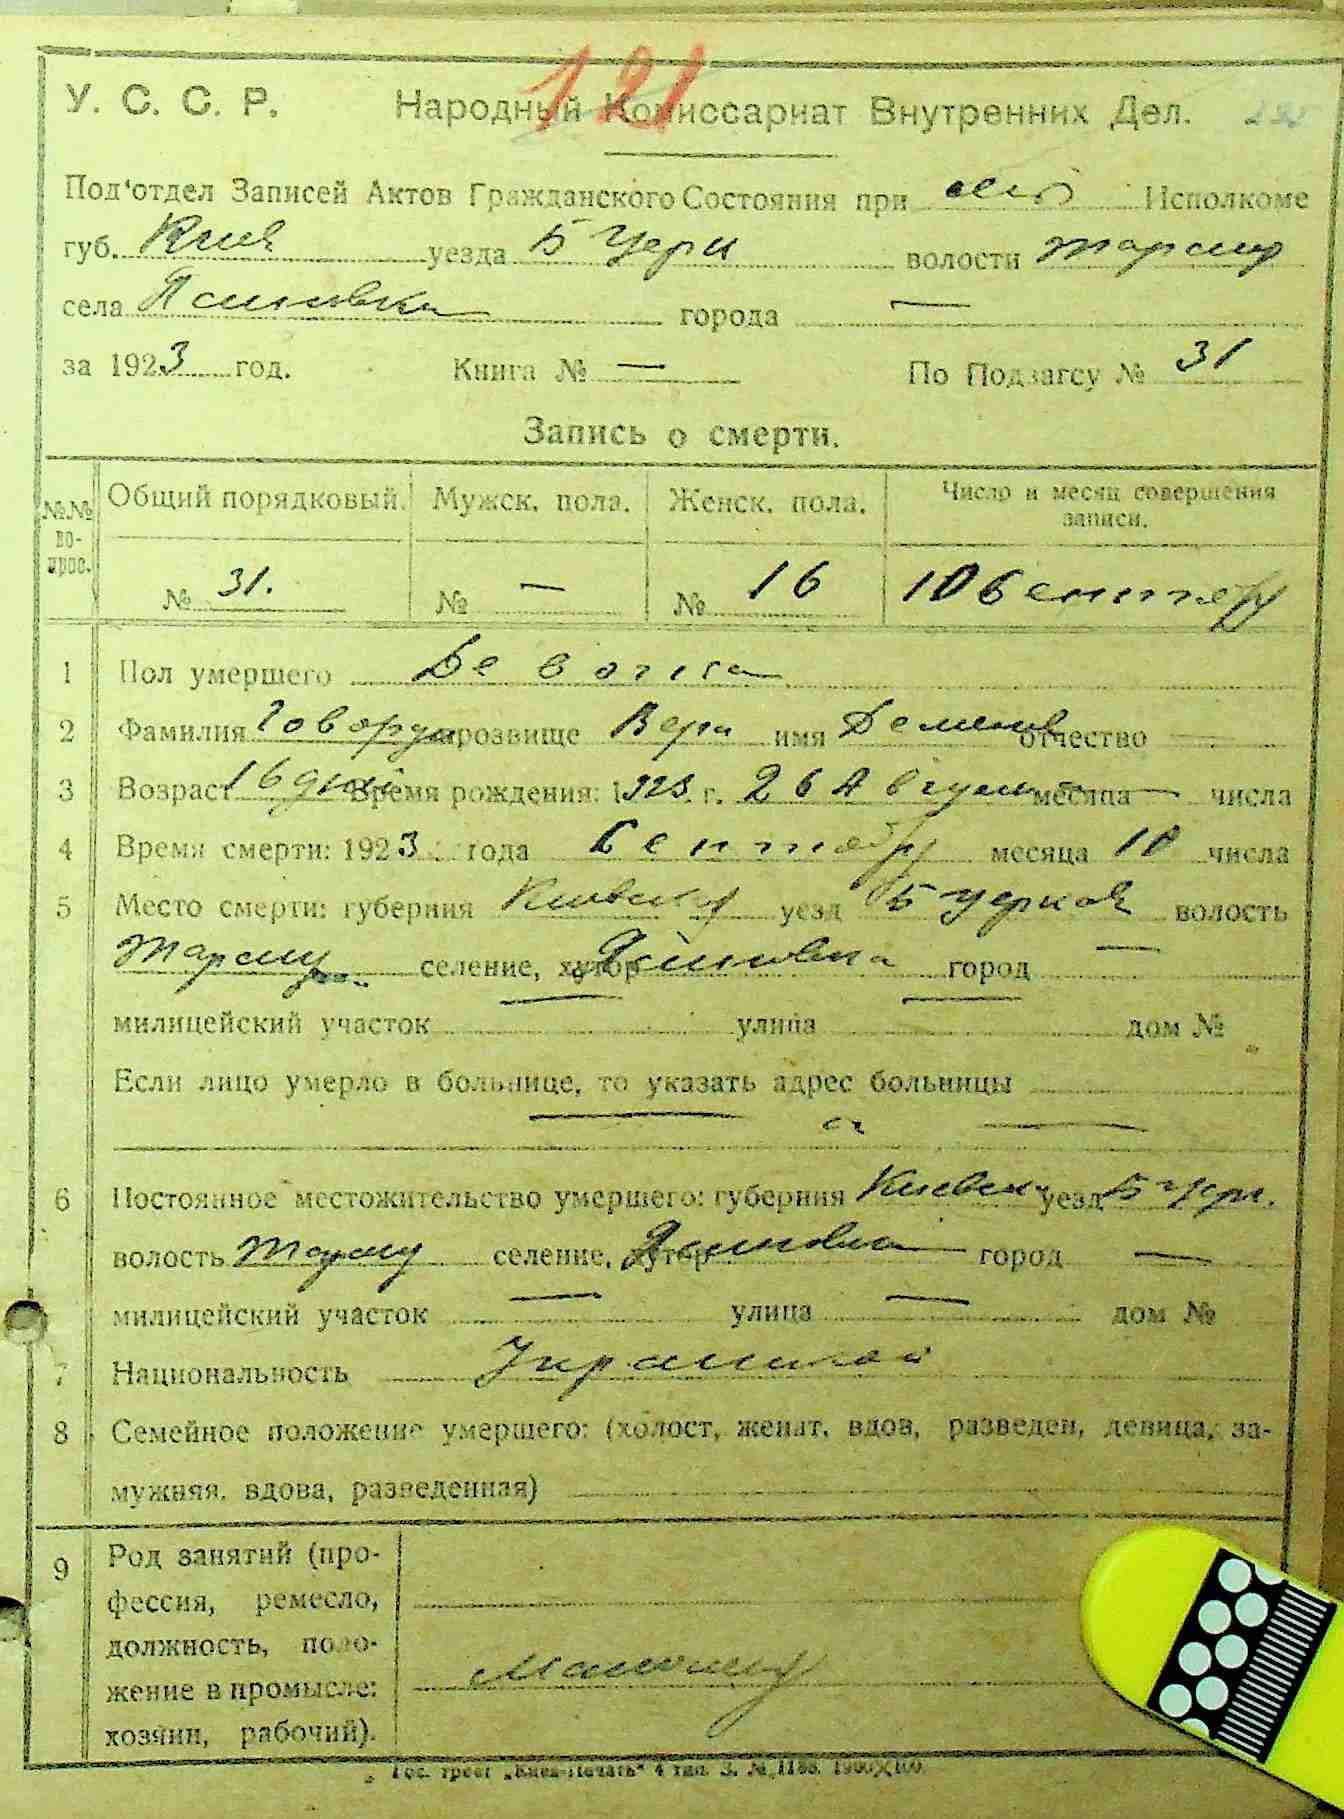 121
У. С. С. Р. Народный Комиссариат Внутренних Дел.
Под'отдел Записей Актов Гражданского Состояния при Исполкоме
губ. Киев уезда Б Церк волости
села города —
за 1923 год. Книга № — По Подзагсу № 31
Запись о смерти.
№№ вопрос. Общий порядковый. Мужск. пола. Женск. пола. Число и месяц совершения записи.
№ 31. № — № 16 10 Сентябр
1 Пол умершего Девочка
2 Фамилия прозвище Вера имя отчество
3 Возраст 16 дней Время рождения: 1923. г. 26 Августа месяца — числа
4 Время смерти: 1923 года Сентябр месяца 10 числа
5 Место смерти: губерния Киевск уезд Б Церков волость
селение, хутор город —
милицейский участок — улица — дом №
Если лицо умерло в больнице, то указать адрес больницы
6 Постоянное местожительство умершего: губерния Киевск уезд Б Церк.
волость селение, хутор город —
милицейский участок — улица — дом №
7 Национальность
8 Семейное положение умершего: (холост, женат, вдов, разведен, девица, за-
мужняя, вдова, разведенная)
9 Род занятий (про-
фессия, ремесло,
должность, поло-
жение в промысле:
хозяин, рабочий).
Гос. трест „Киев-Печать" 4 тип. З. № 1188.